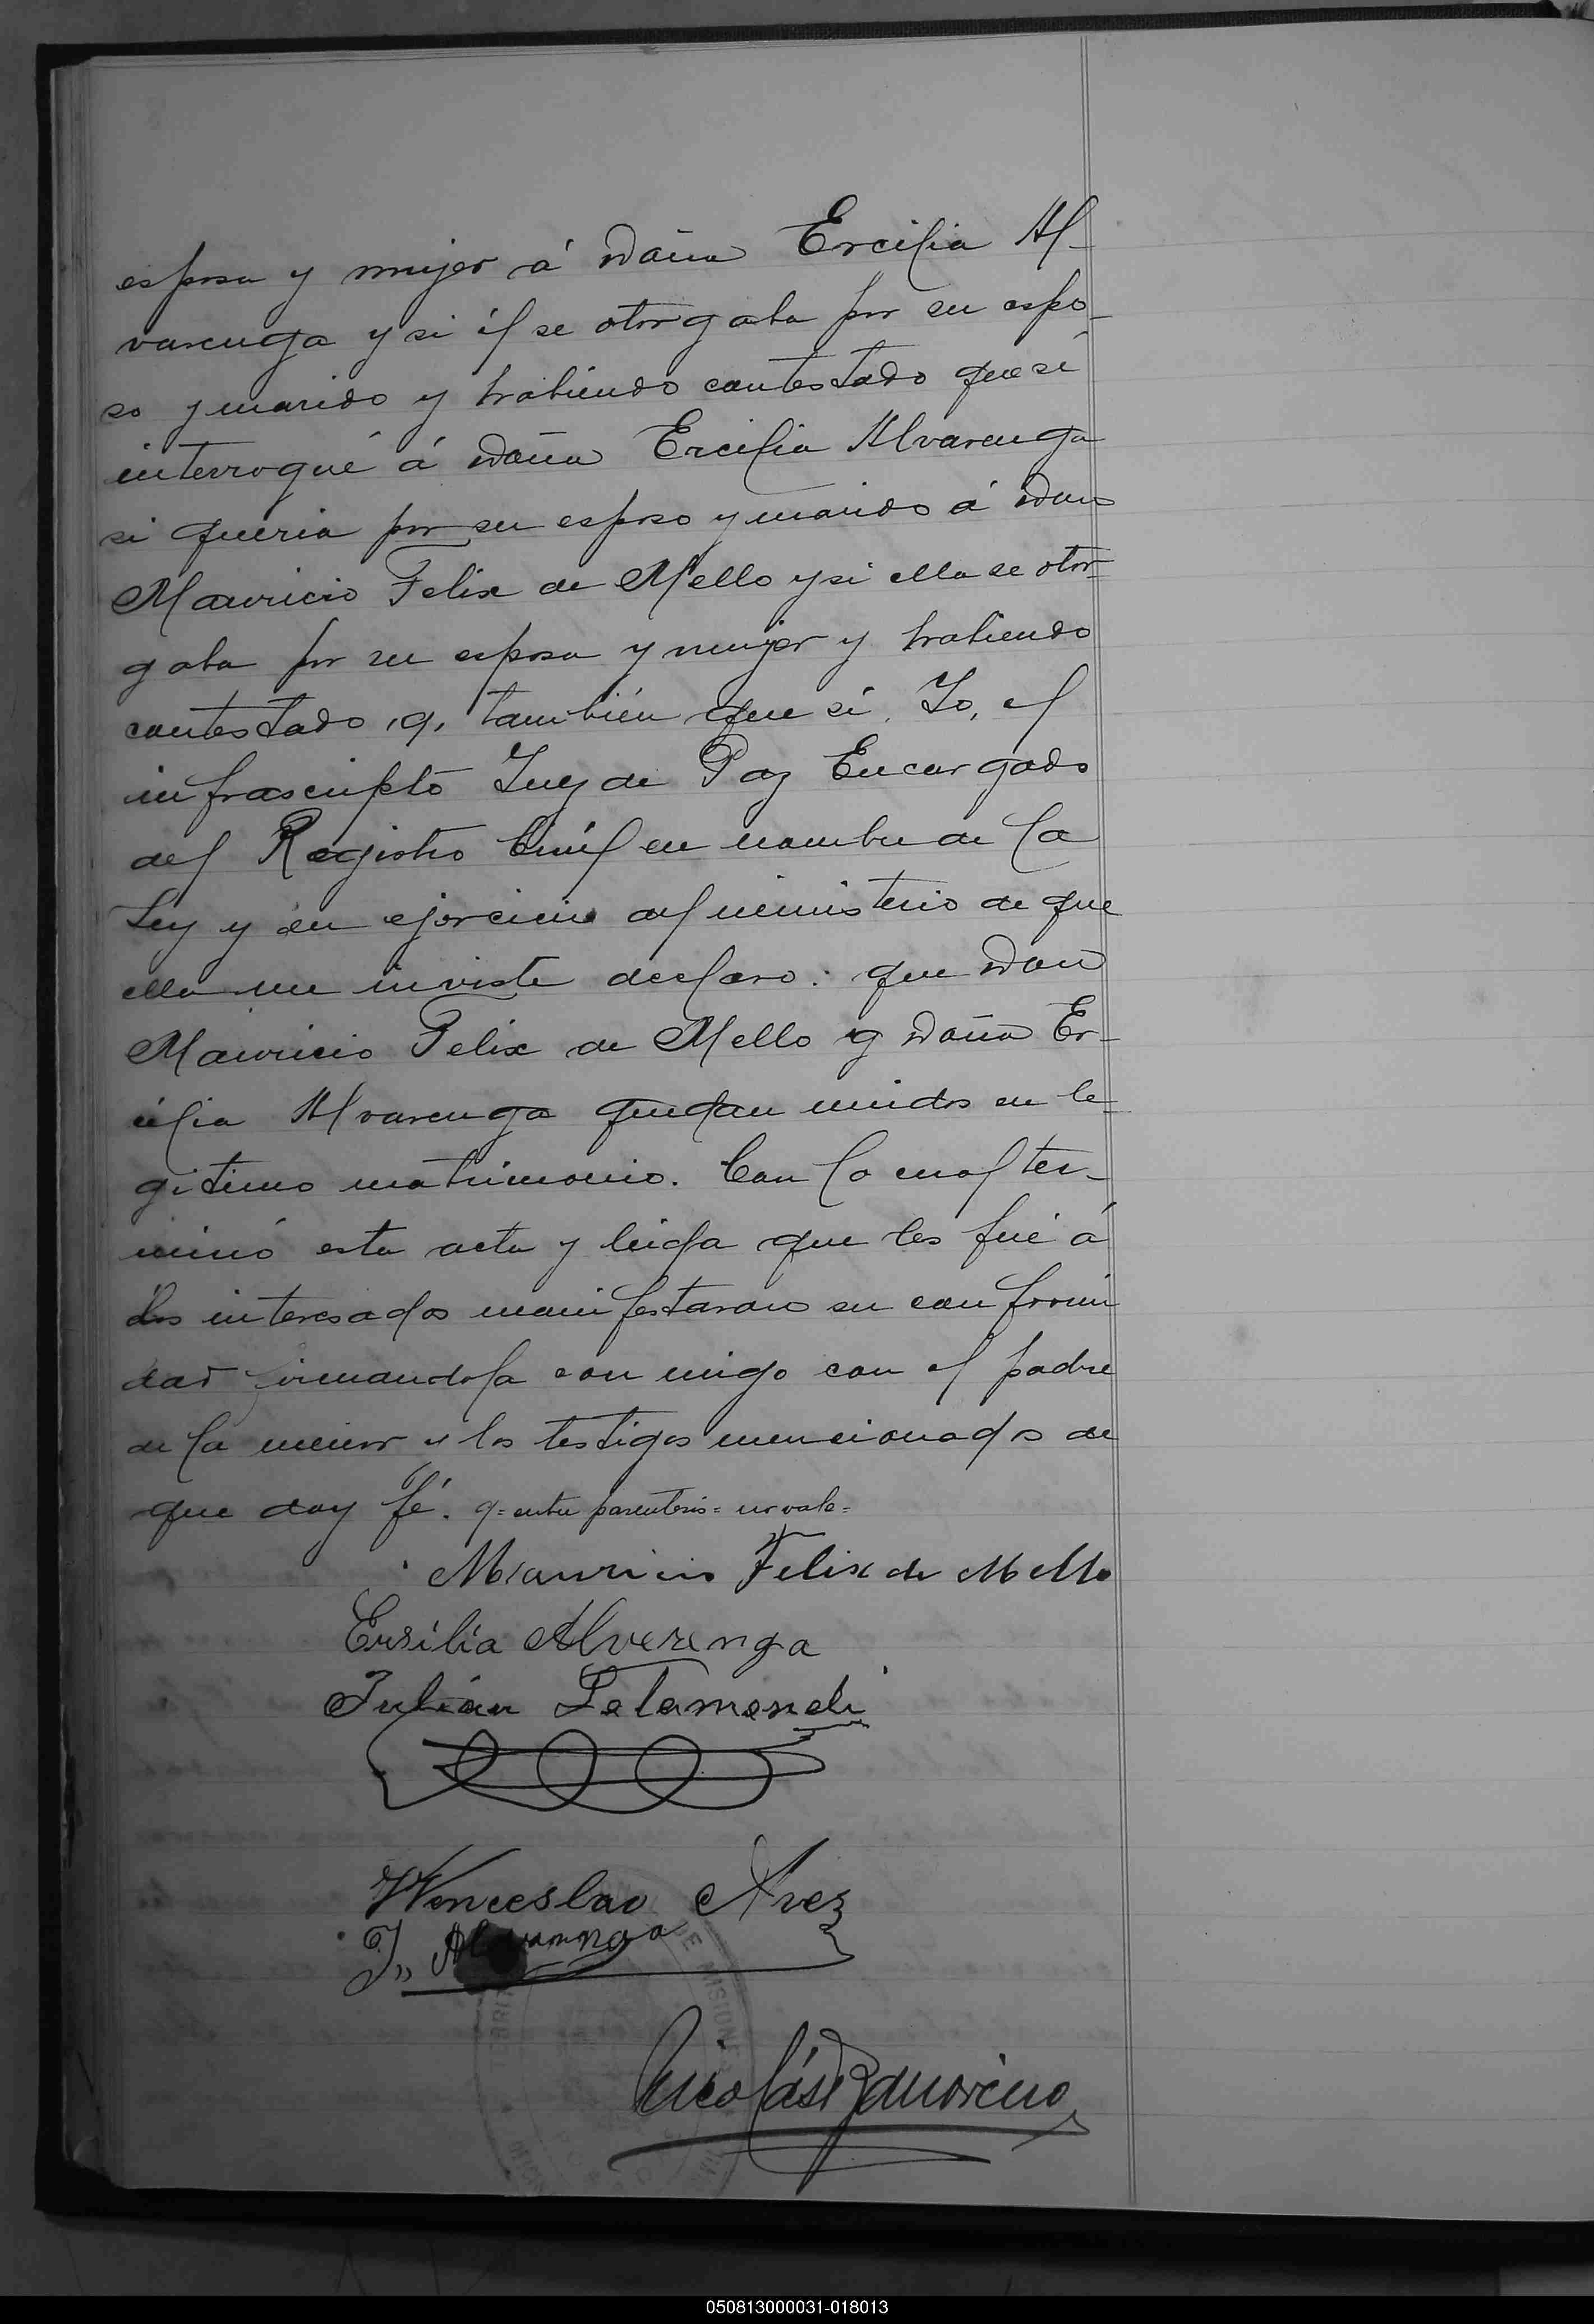 esposa y mujer á Doña Ercilia Al-
varenga y si él se otorgaba por su espo-
so y marido y habiendo contestado que sí
interrogué á Doña Ercilia Alvarenga
si queria por su esposo y marido á Don
Mauricio Felix de Mello y si ella se otor-
gaba por su esposa y mujer y habiendo
contestado (q) también que sí. Yo, el
infrascripto Juez de Paz Encargado
del Registro Civil en nombre de la
Ley y en ejercicio del ministerio de que
ella me inviste declaro: que Don
Mauricio Felix de Mello y Doña Er-
cilia Alvarenga quedan unidos en le-
gitimo matrimonio. Con lo cual ter-
minó esta acta y leida que les fué á
los interesados manifestaron su conformi
dad firmandola con migo con el padre
de la menor y los testigos mencionados de
que doy fé. q= entre parentesis= no vale=
Mauricio Felix de Mello
Ersilia Alverenga
Julián Letamendi
Wenceslao Arez
J. Alvarenga
Nicolás
DE MISIONES
050813000031-018013